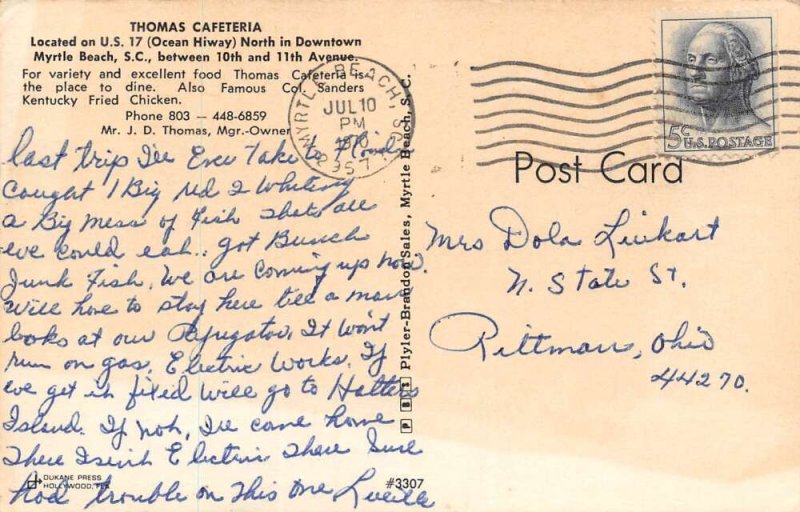 THOMAS CAFETERIA
Located on U.S. 17 (Ocean Hiway) North in Downtown
Myrtle Beach, S.C., between 10th and 11th Avenue.
For variety and excellent food Thomas Cafeteria is
the place to dine. Also Famous Col. Sanders
Kentucky Fried Chicken.
Phone 803 — 448-6859
Mr. J. D. Thomas, Mgr.-Owner
last trip I'll Ever Take to
Caught 1 Big Red 2 Whiting
a Big Mess of Fish thats all
we could eah. got Bunch
Junk Fish. We are coming up now.
will have to stay here till a man
looks at our It won't
run on gas. Electric works. If
we get it fixed will go to Hatters
Island. If noh, I'll come home
There isenh Electric There Sure
had trouble on This one Lucille
DUKANE PRESS
HOLLYWOOD, FLA
#3307
Plyler-Brandon Sales, Myrtle Beach, S. C.
MYRTLE BEACH, S.C.
JUL 10
PM
5¢
U.S. POSTAGE
Post Card
Mrs Dola
N. State St.
Pittman, Ohio
44270.